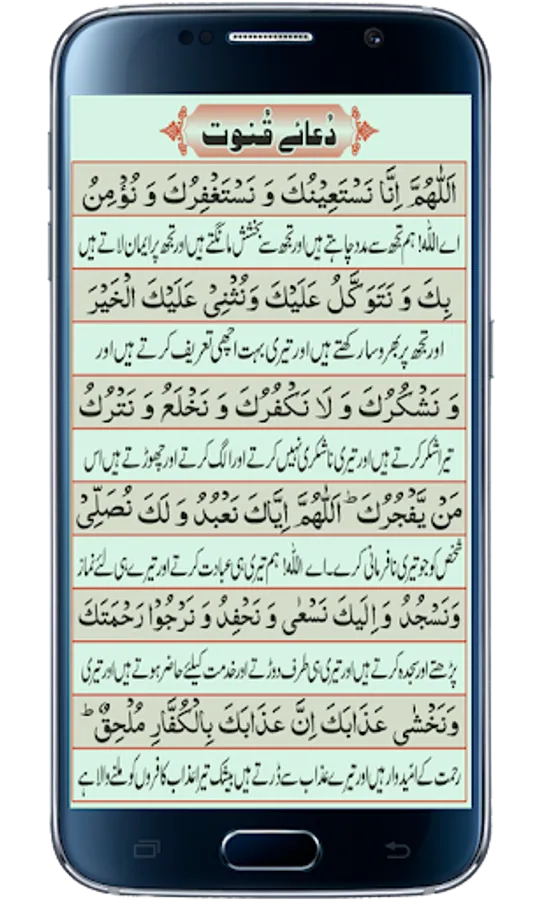 دُعائے قُنوت
اَللّٰهُمَّ اِنَّا نَسْتَعِيْنُكَ وَ نَسْتَغْفِرُكَ وَ نُؤْمِنُ
اے اللہ! ہم تجھ سے مدد چاہتے ہیں اور تجھ سے بخشش مانگتے ہیں اور تجھ پر ایمان لاتے ہیں
بِكَ وَ نَتَوَكَّلُ عَلَيْكَ وَنُثْنِيْ عَلَيْكَ الْخَيْرَ
اور تجھ پر بھروسا رکھتے ہیں اور تیری بہت اچھی تعریف کرتے ہیں اور
وَ نَشْكُرُكَ وَ لَا نَكْفُرُكَ وَ نَخْلَعُ وَ نَتْرُكُ
تیرا شکر کرتے ہیں اور تیری ناشکری نہیں کرتے اور الگ کرتے اور چھوڑتے ہیں اس
مَنْ يَّفْجُرُكَ ؕ اَللّٰهُمَّ اِيَّاكَ نَعْبُدُ وَ لَكَ نُصَلِّيْ
شخص کو جو تیری نافرمانی کرے۔ اے اللہ! ہم تیری ہی عبادت کرتے اور تیرے ہی لئے نماز
وَنَسْجُدُ وَ اِلَيْكَ نَسْعٰى وَ نَحْفِدُ وَ نَرْجُوْا رَحْمَتَكَ
پڑھتے اور سجدہ کرتے ہیں اور تیری ہی طرف دوڑتے اور خدمت کیلئے حاضر ہوتے ہیں اور تیری
وَنَخْشٰى عَذَابَكَ اِنَّ عَذَابَكَ بِالْكُفَّارِ مُلْحِقٌ ؕ
رحمت کے امیدوار ہیں اور تیرے عذاب سے ڈرتے ہیں بیشک تیرا عذاب کافروں کو ملنے والا ہے